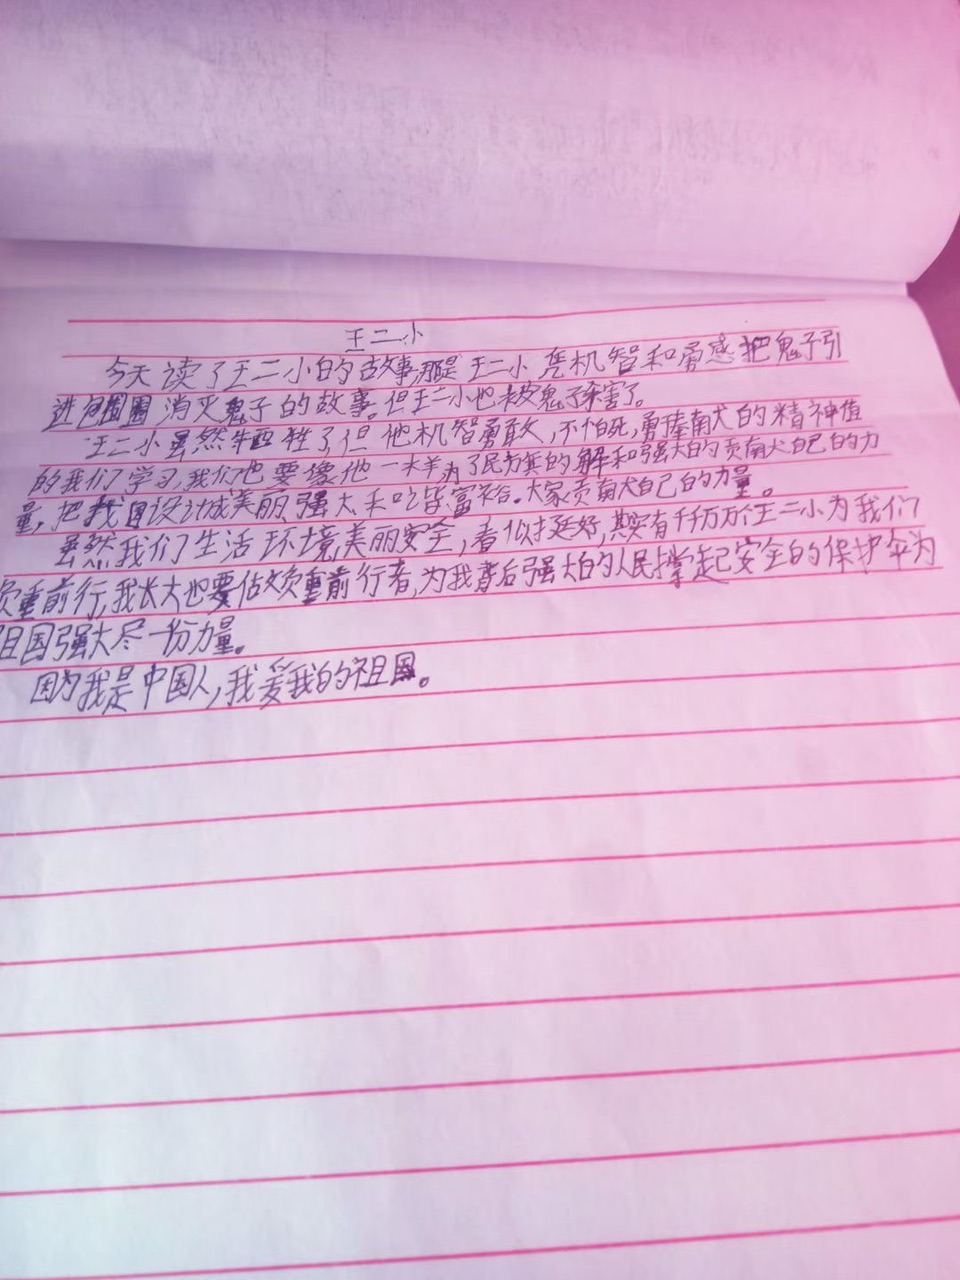 王二小
今天读了王二小的故事,那是王二小凭机智和勇感把鬼子引
进包围圈消灭鬼子的故事。但王二小也被鬼子杀害了。
王二小虽然牺牲了,但他机智勇敢,不怕死,勇奉献的精神值
的我们学习,我们也要像他一样为了民族的解和强大的贡献自己的力
量,把我国设计成美丽、强大和富裕。大家贡献自己的力量。
虽然我们生活环境美丽安全,看似挺好,其实有千千万万个王二小为我们
负重前行,我长大也要做负重前行者,为我背后强大的人民撑起安全的保护伞为
祖国强大尽一份力量。
因为我是中国人,我爱我的祖国。